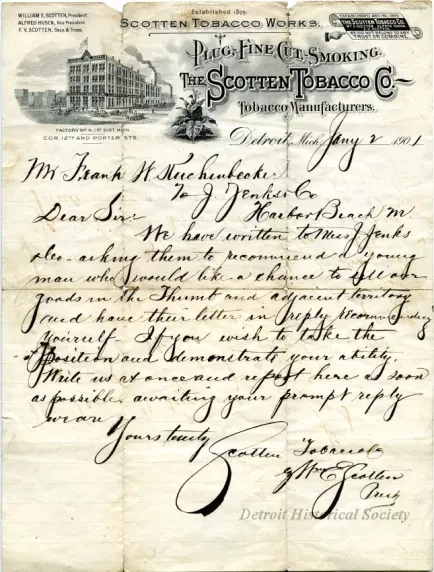 WILLIAM E. SCOTTEN, President.
ALFRED HUSEN, Vice President.
F. V. SCOTTEN, Secy & Treas.
Established 1899.
SCOTTEN TOBACCO WORKS.
PLUG, FINE CUT, SMOKING.
THE SCOTTEN TOBACCO CO.
Tobacco Manufacturers.
ESTABLISHED AND INC. 1899
The Scotten Tobacco Co.
WE DO NOT BELONG TO ANY
TRUST OR COMBINE.
FACTORY No. 4, 1ST DIST. MICH.
COR. 12TH AND PORTER STS.
Detroit, Mich. Jany 2 1901
Mr Frank W. Kuchenbecke
To J. Jenks & Co
Dear Sir:- Harbor Beach M.
We have written to Mess J Jenks
& Co- asking them to recommend a young
man who would like a chance to sell our
goods in the Thumb and adjacent territory
and have their letter in reply recommending
yourself- If you wish to take the
Position and demonstrate your ability,
Write us at once and report here as soon
as possible, awaiting your prompt reply
we are
Yours truly
Scotten Tobacco Co
Wm E Scotten
Detroit Historical Society